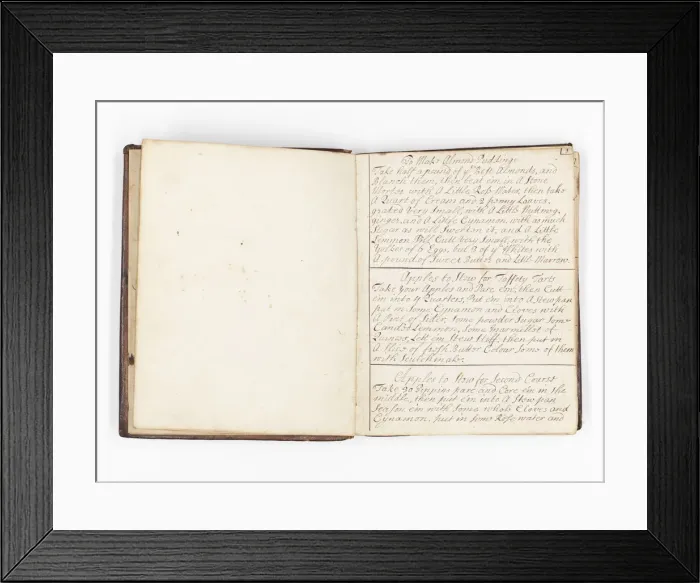 1
To Make Almond Puddings
Take half a pound of ye best Almonds, and
blanch them, then beat em in A Stone
Morter with A Little Rose Water, then take
A Quart of Cream and 2 penny Loaves,
grated Very Small, with A Little Nuttmeg,
ginger, and A Little Cynamon, with as much
Sugar as will Sweeten it, and A Little
Lemmon Pill Cutt Very Small, with the
Yolks of 6 Eggs, but 3 of ye Whites with
A pound of Sweet Butter and Little Marrow.
Apples to Stew for Taffety Tarts
Take Your Apples and Pare Em, then Cutt
Em into 4 Quarters, Put Em into A Stewpan
put in Some Cynamon and Cloves with
A Pint of Sider, Some powder Sugar Some
Candet Lemmon, Some Marmellet of
Quinces, Lett Em Stew Stiff, then put in
A Piece of fresh Butter Colour Some of them
with
Apples to Stew for Second Course
Take 20 Pippins pare and Core Em in the
middle, then put Em into A Stew pan
Season Em with Some whole Cloves and
Cynamon, put in Some Rose water and